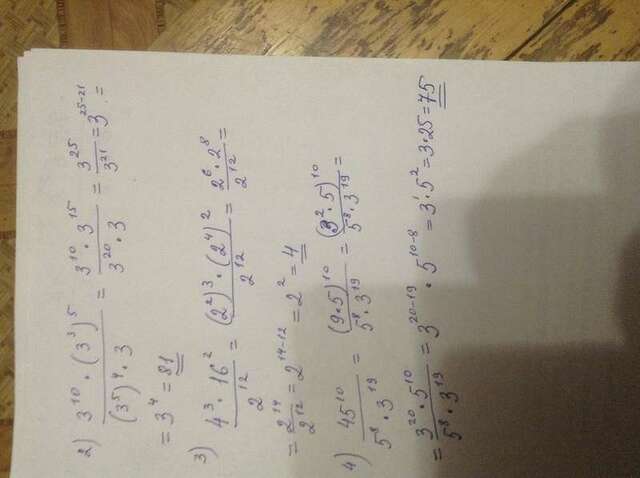 2) (3^10 · (3^3)^5) / ((3^5)^4 · 3) = (3^10 · 3^15) / (3^20 · 3) = 3^25 / 3^21 = 3^(25-21) =
= 3^4 = 81
3) (4^3 · 16^2) / 2^12 = ((2^2)^3 · (2^4)^2) / 2^12 = (2^6 · 2^8) / 2^12 =
= 2^14 / 2^12 = 2^(14-12) = 2^2 = 4
4) 45^10 / (5^8 · 3^19) = (9·5)^10 / (5^8 · 3^19) = (3^2 · 5)^10 / (5^8 · 3^19) =
= (3^20 · 5^10) / (5^8 · 3^19) = 3^(20-19) · 5^(10-8) = 3^1 · 5^2 = 3·25 = 75